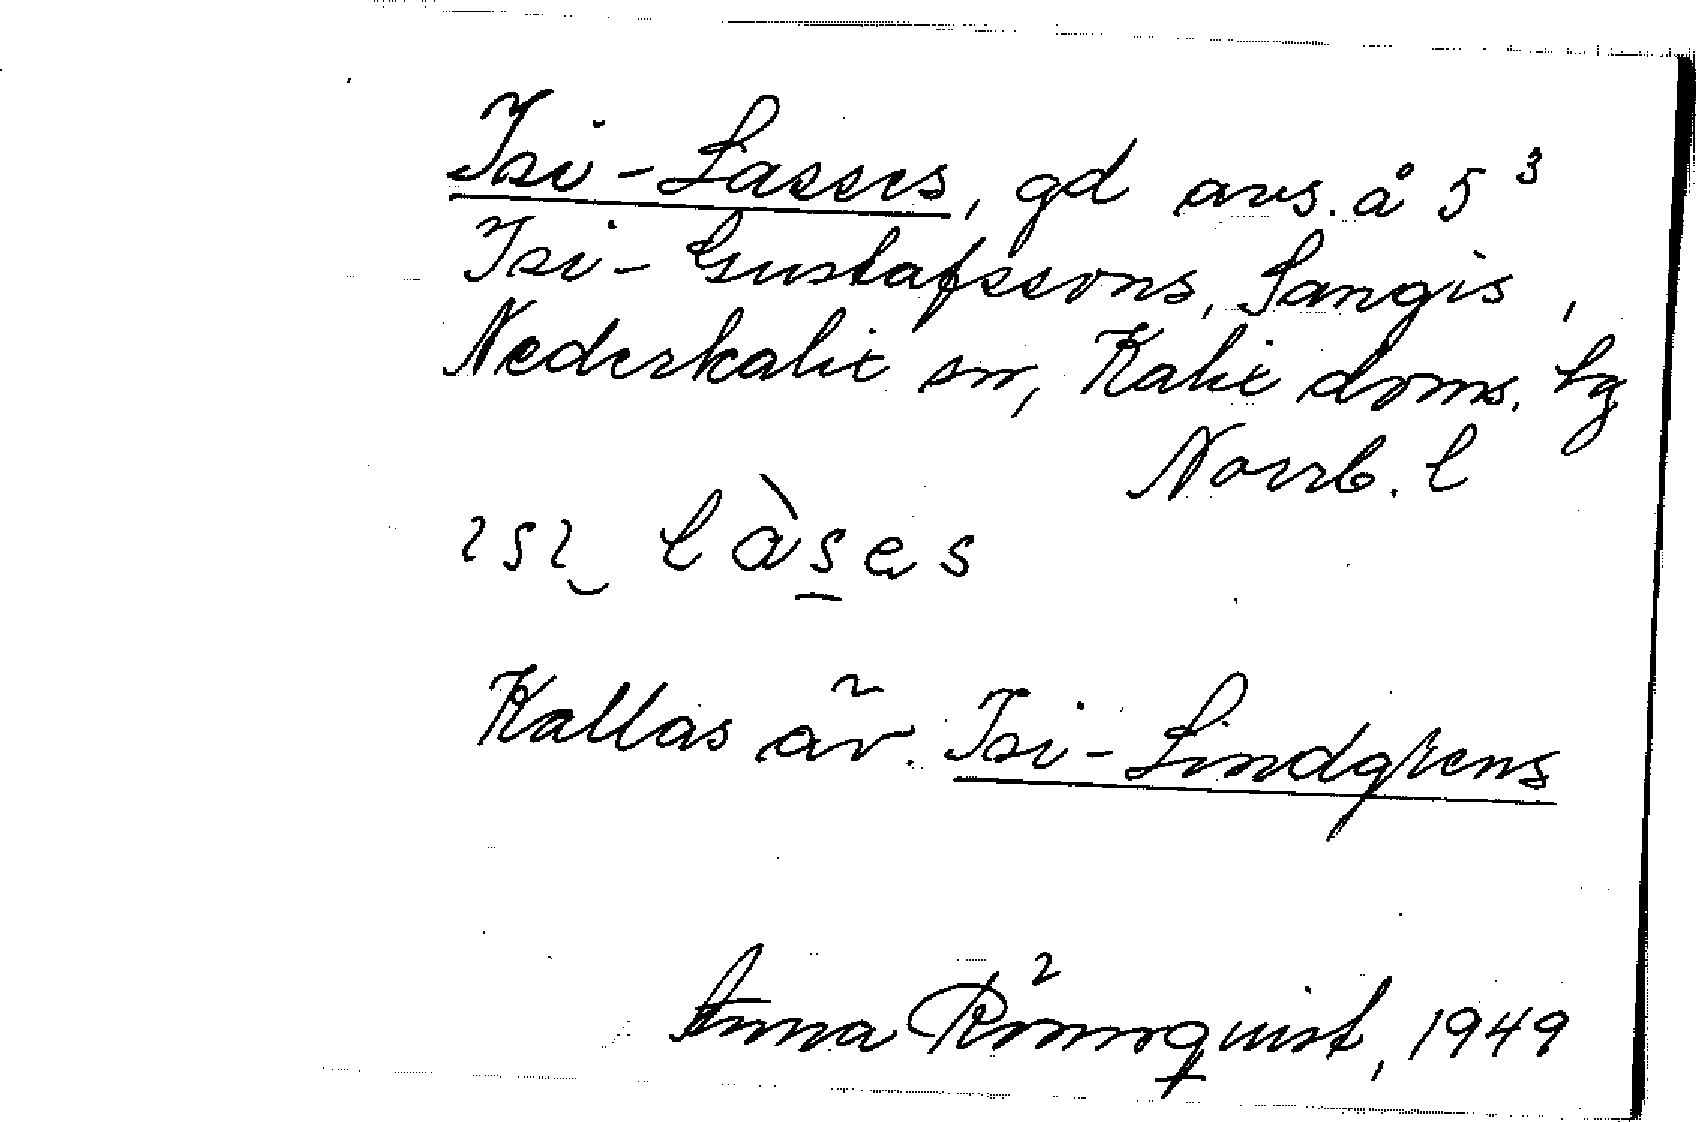 Isi-Lasses, gd avs. å 5³
Isi-Gustafssons, Sangis,
Nederkalix sn, Kalix doms. lg
Norrb. l
ısı‿ làs̲es
Kallas äv. Isi-Lindgrens
Anna Rönnquist, 1949